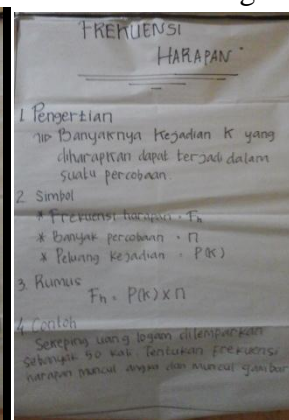 FREKUENSI
HARAPAN
1. Pengertian
Banyaknya Kejadian K yang
diharapkan dapat terjadi dalam
suatu percobaan.
2. Simbol
* Frekuensi harapan = Fh
* Banyak percobaan = n
* Peluang kejadian = P(K)
3. Rumus
Fh = P(K) x n
4. Contoh
Sekeping uang logam dilemparkan
sebanyak 50 kali. Tentukan frekuensi
harapan muncul angka dan muncul gambar